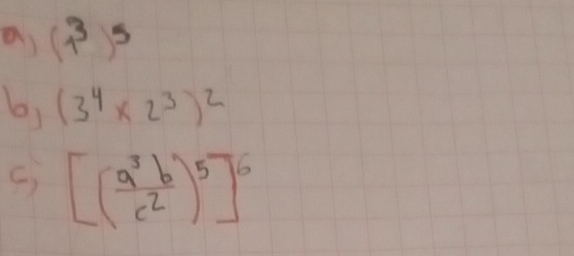 a) (1³)⁵
b) (3⁴ × 2³)²
c) [(a³b/c²)⁵]⁶